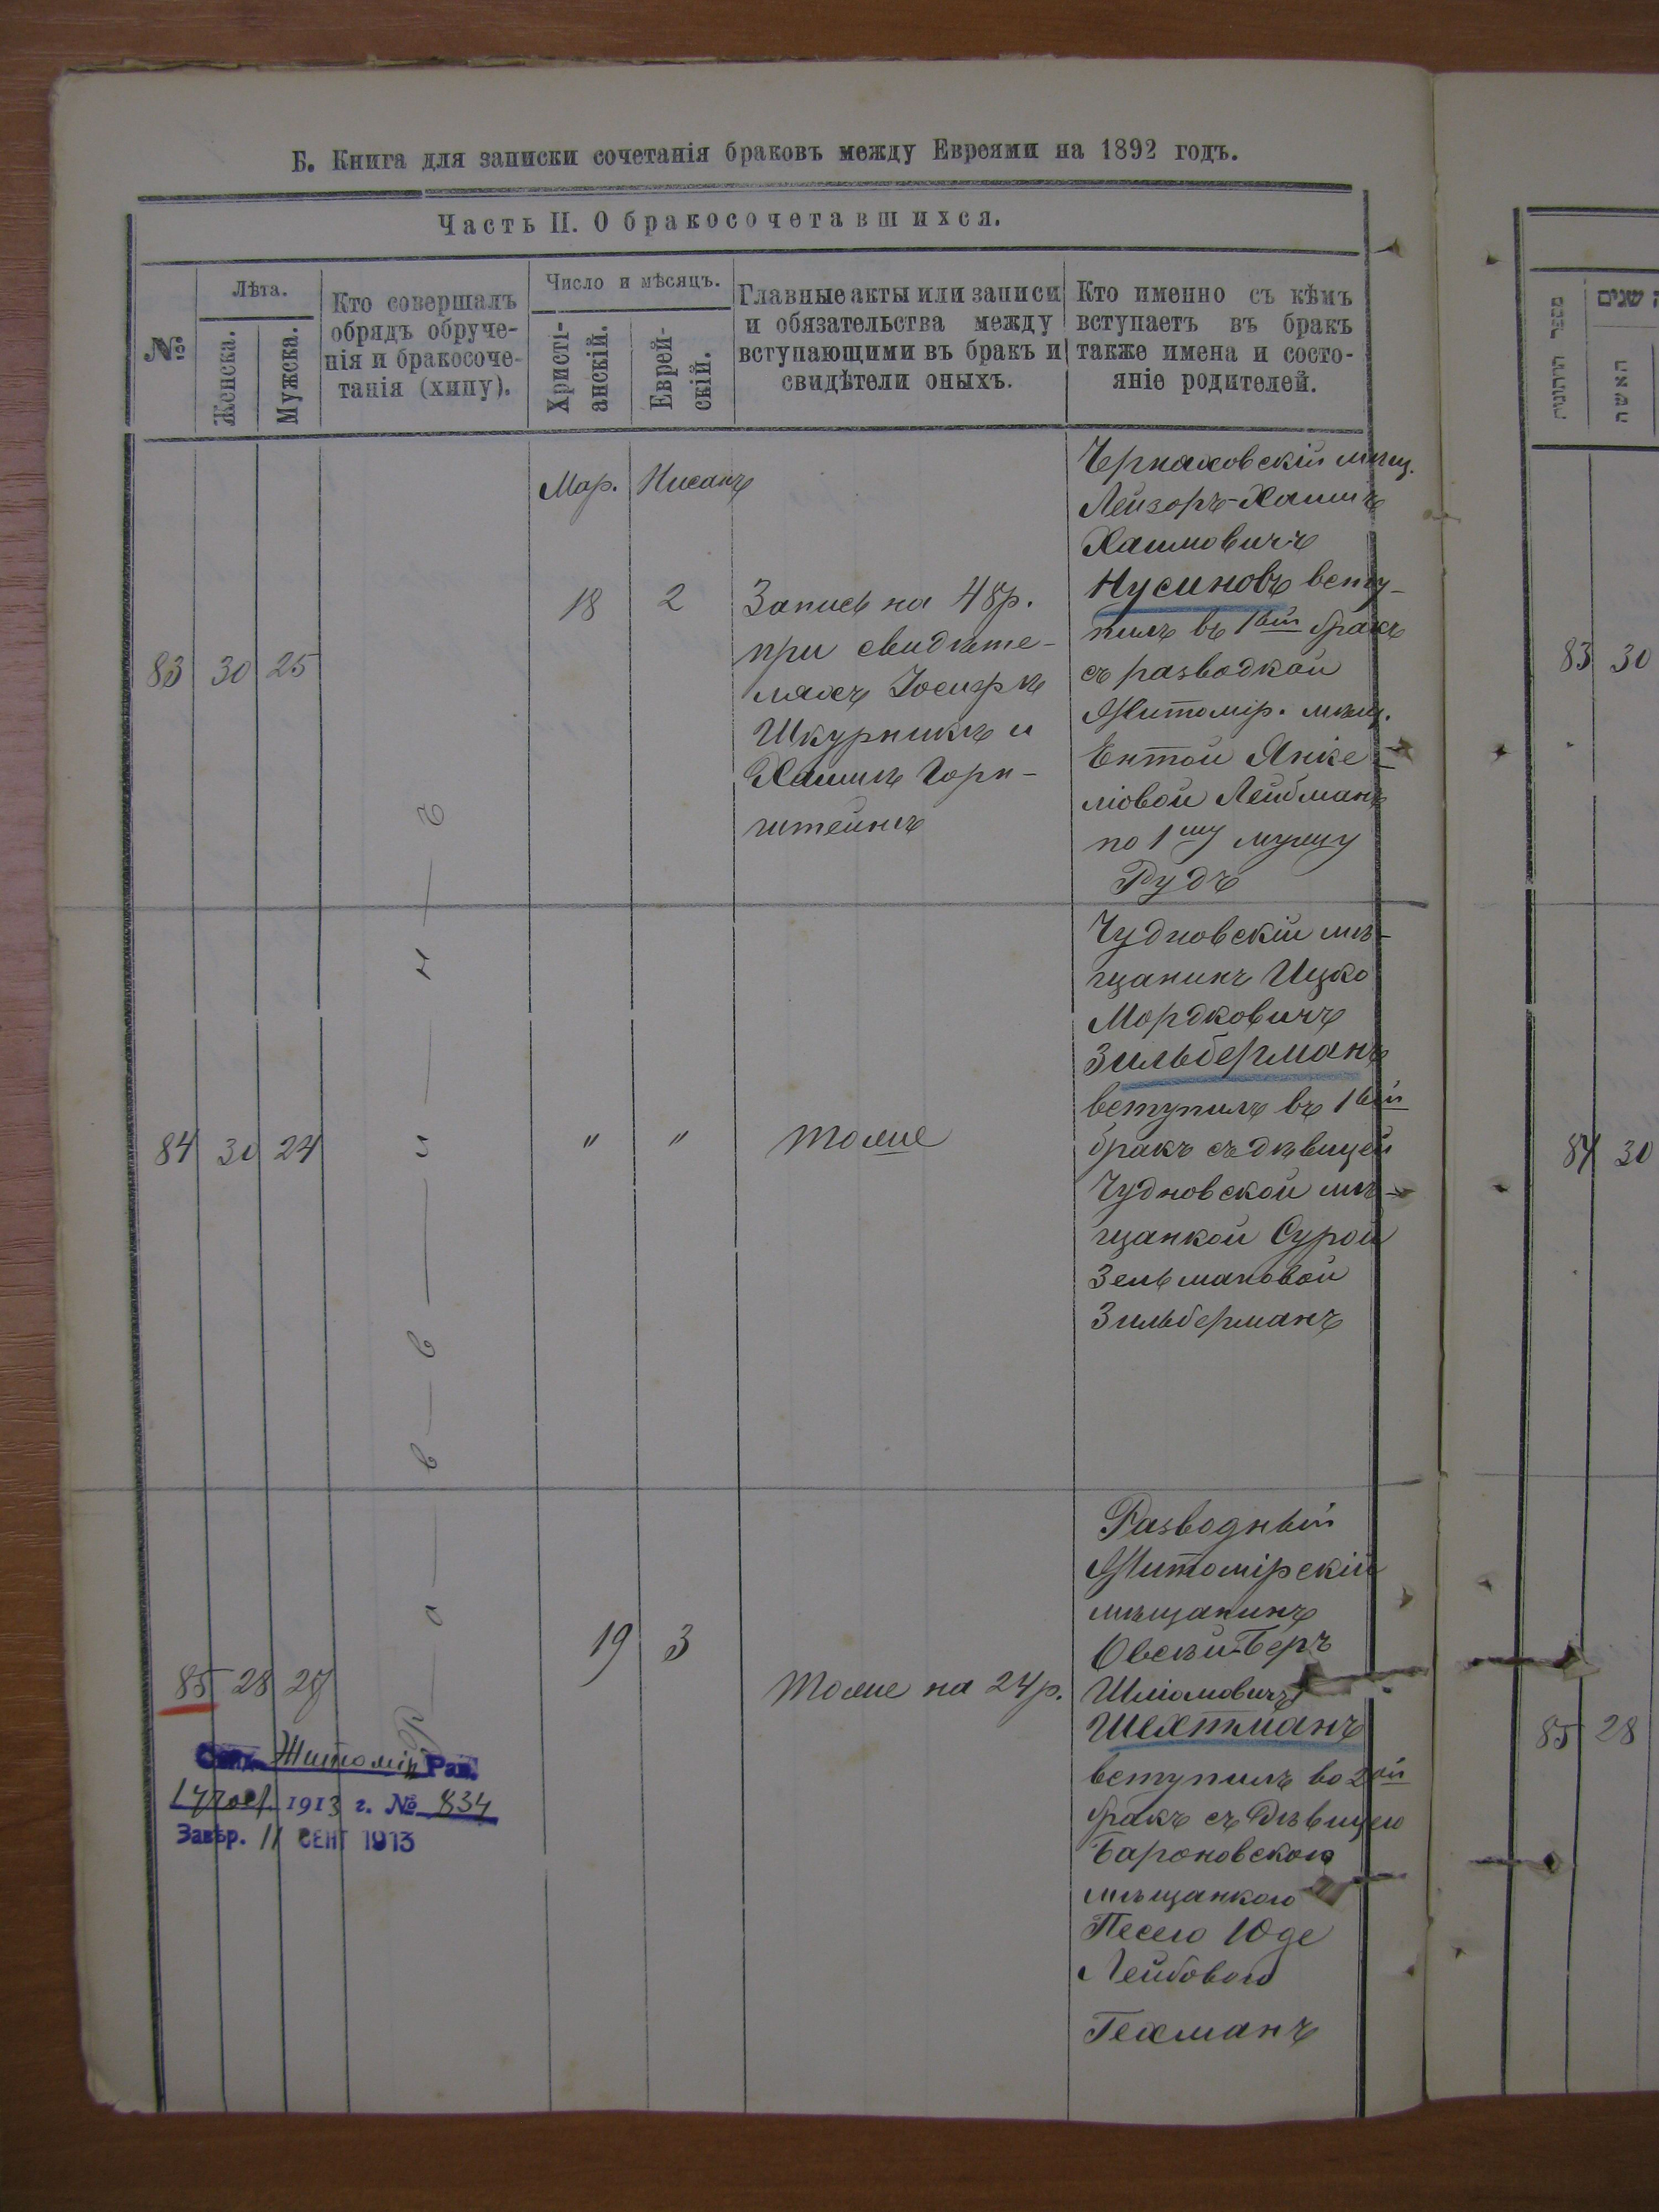 Б. Книга для записки сочетанія браковъ между Евреями на 1892 годъ.
Часть II. О бракосочетавшихся.
№
Лѣта.
Женска.
Мужска.
Кто совершалъ
обрядъ обруче-
нія и бракосоче-
танія (хипу).
Число и мѣсяцъ.
Христі-
анскій.
Еврей-
скій.
Главные акты или записи
и обязательства между
вступающими въ бракъ и
свидѣтели оныхъ.
Кто именно съ кѣмъ
вступаетъ въ бракъ
также имена и состо-
яніе родителей.
Раввинъ
83 30 25
Мар. Нисанъ
18 2
Запись на 48р.
при свидѣте-
ляхъ
Шкурникъ и
Хаимъ Горн-
штейнъ
Черняховскій мѣщ.
Лейзоръ-Хаимъ
Хаимовичъ
Нусиновъ всту-
пилъ въ 1вый бракъ
съ разводкой
Житомір. мѣщ.
Ентой Янке-
ліовой Лейбманъ
по 1му мужу
Рудъ
84 30 24
" "
тоже
Чудновскій мѣ-
щанинъ Ицко
Мордковичъ
Зильберманъ
вступилъ въ 1вый
бракъ съ дѣвицей
Чудновской мѣ-
щанкой Сурой
Зельмановой
Зильберманъ
85 28 27
19 3
тоже на 24р.
Разводный
Житомірскій
мѣщанинъ
Овсѣй-Беръ
Шліомовичъ
Шехтманъ
вступилъ во 2ой
бракъ съ дѣвицею
Бароновскою
мѣщанкою
Песею Юде
Лейбовою
Гехманъ
Житомір Рав.
1913 г. № 834
Завѣр. 11 СЕНТ 1913
מספר
שנים
האשה
83 30
84 30
85 28